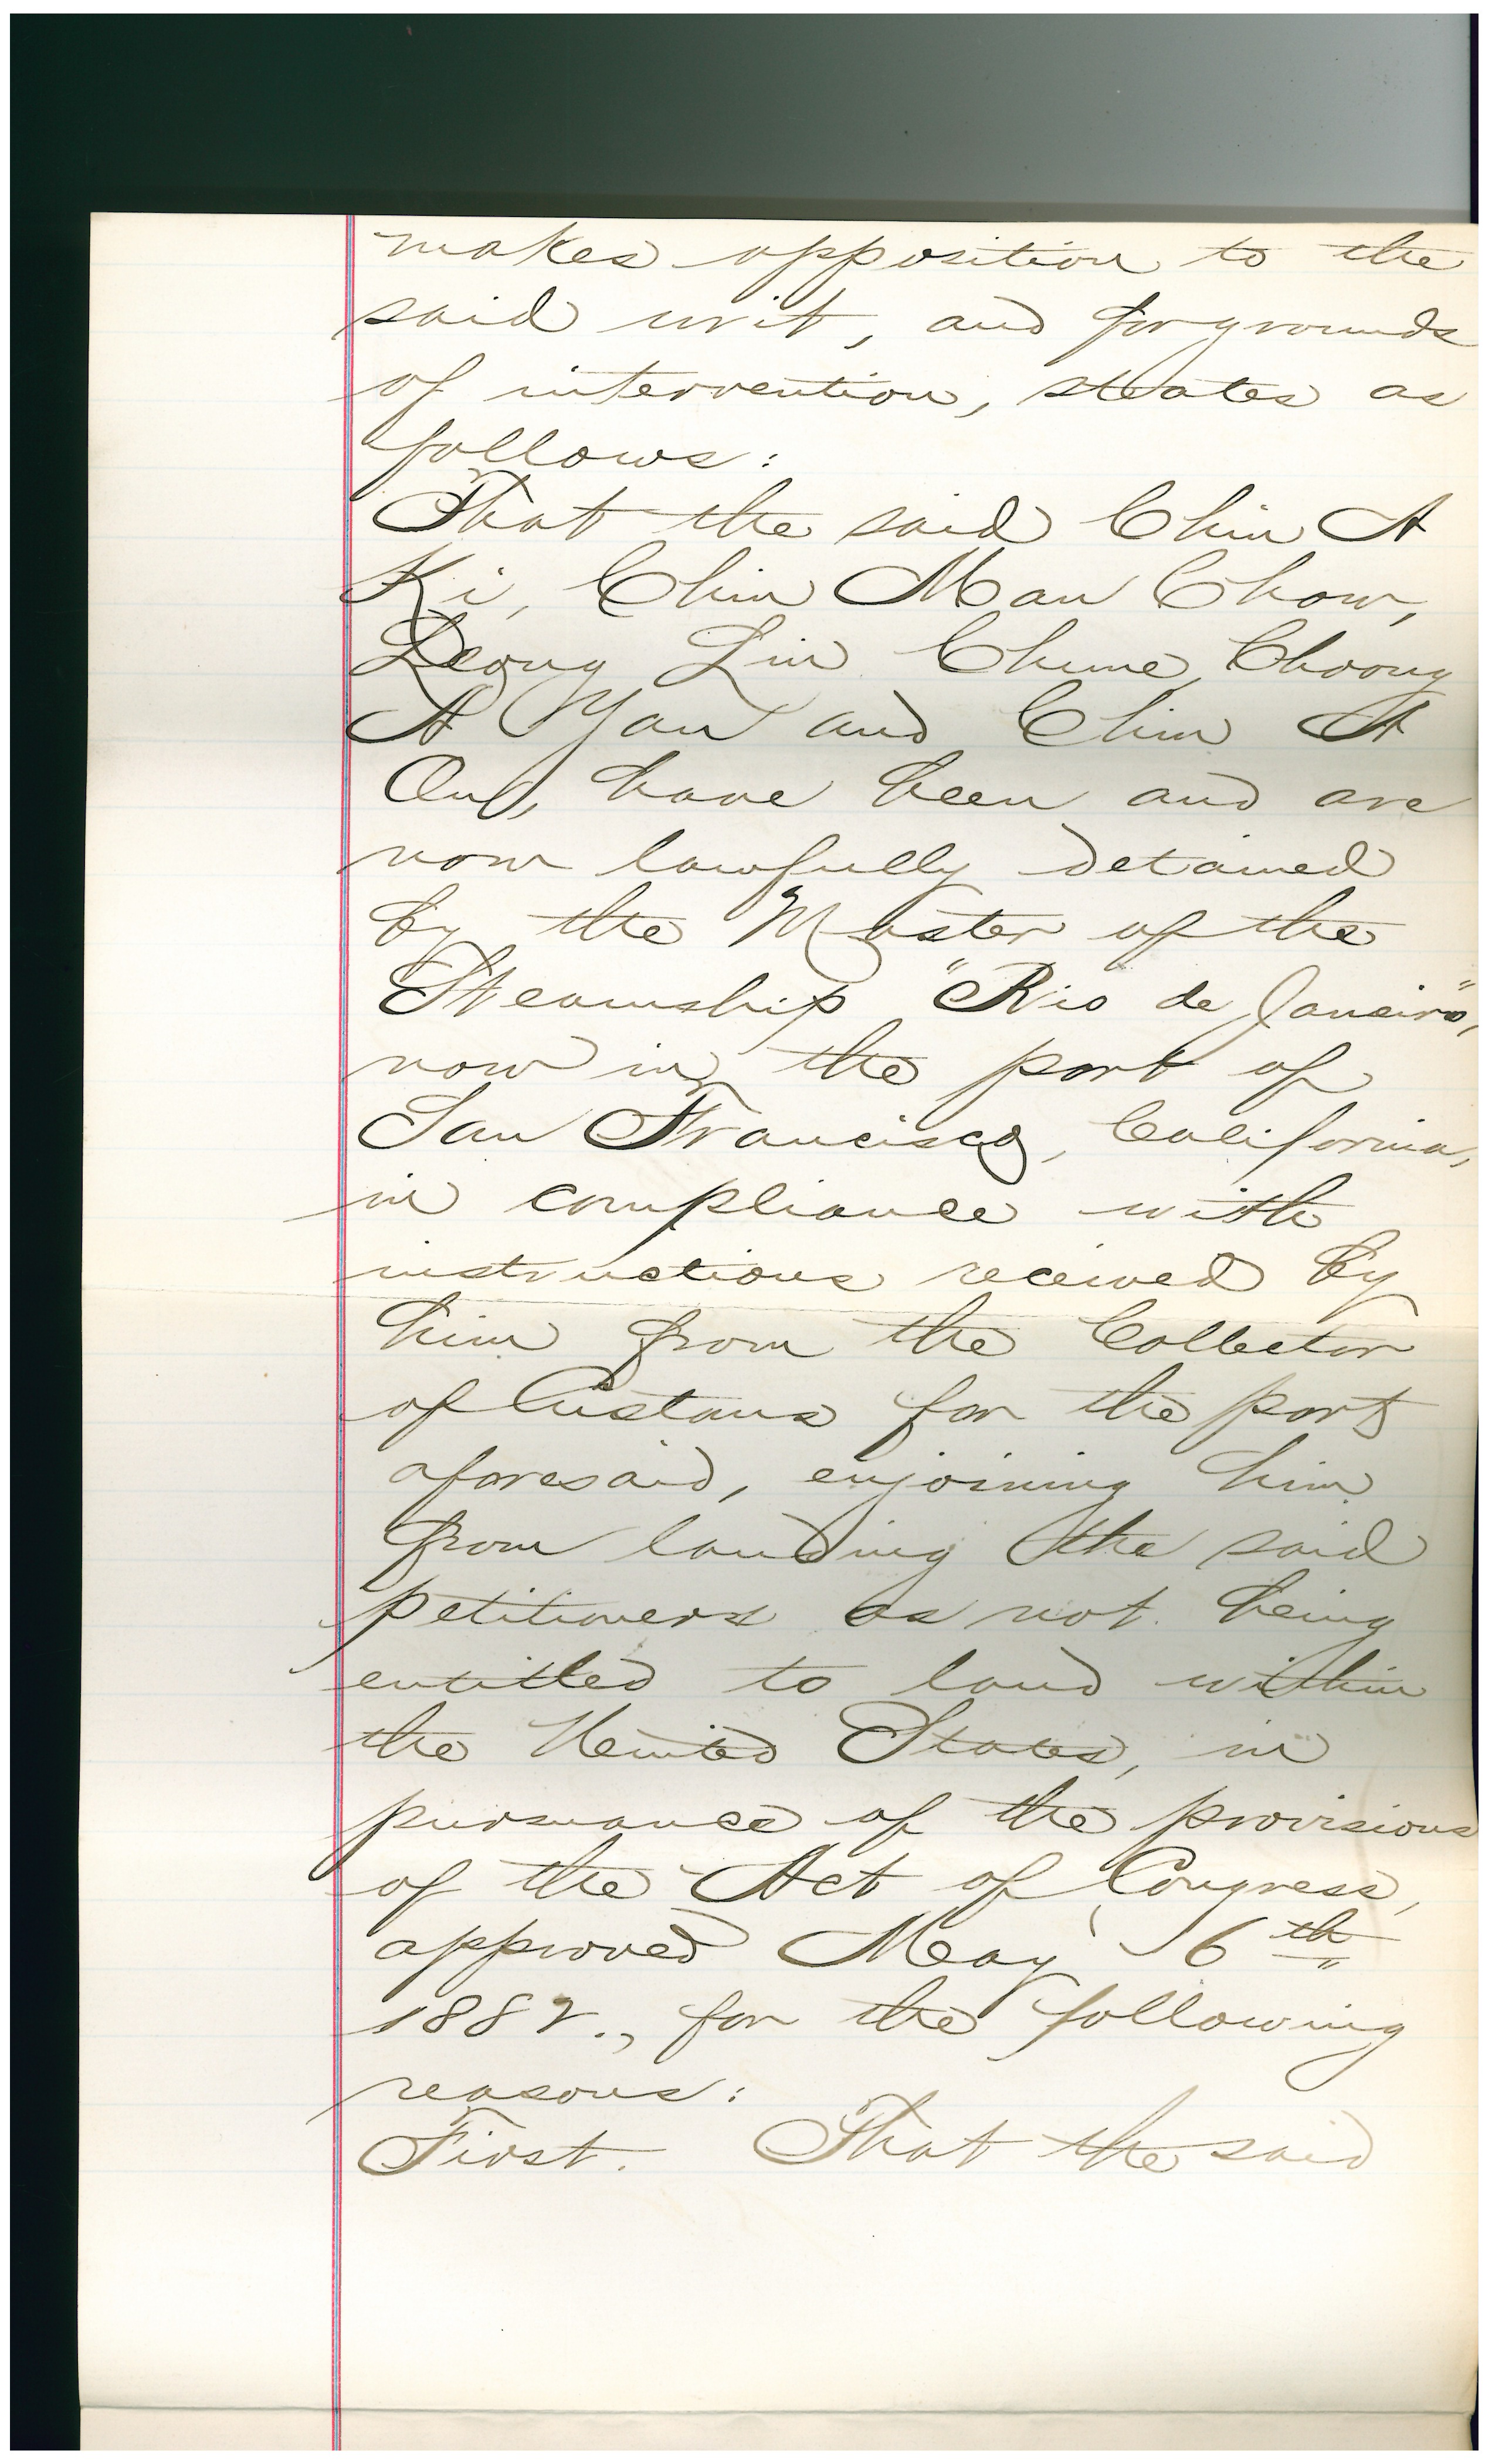 makes opposition to the
said writ, and for grounds
of intervention, states as
follows:
That the said Chin A
Ki, Chin Man Chow,
Leong Lin Chune, Choong
A Yan and Chin A
On, have been and are
now lawfully detained
by the Master of the
Steamship "Rio de Janeiro",
now in the port of
San Francisco, California,
in compliance with
instructions received by
him from the Collector
of Customs for the port
aforesaid, enjoining him
from landing the said
petitioners as not being
entitled to land within
the United States, in
pursuance of the provisions
of the Act of Congress,
approved May 6th
1882., for the following
reasons:
First. That the said